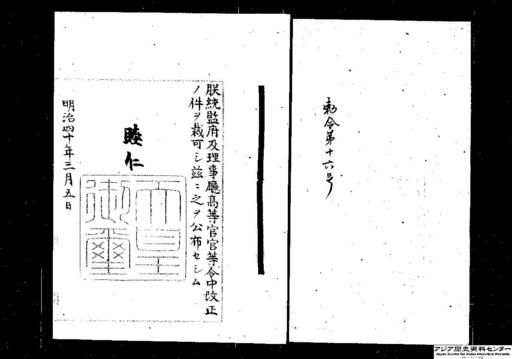 勅令第十六号
朕統監府及理事廳高等官官等令中改正
ノ件ヲ裁可シ茲ニ之ヲ公布セシム
睦仁
天皇御璽
明治四十年三月五日
アジア歴史資料センター
Japan Center for Asian Historical Records